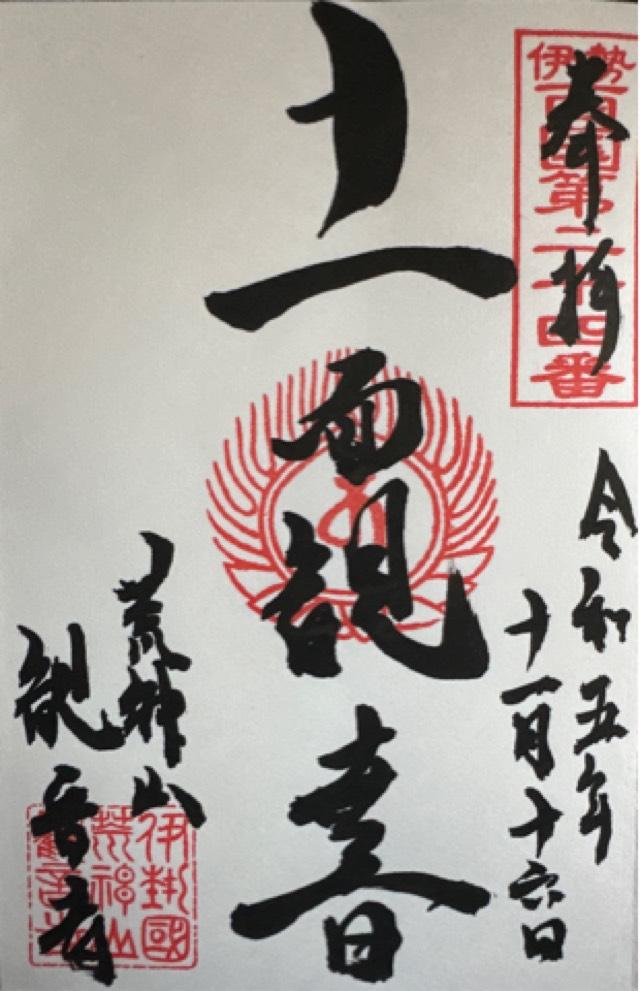 伊勢西國第二十四番
奉拝
令和五年
十一月十六日
十一面観音
荒神山
観音寺
伊勢國
荒神山
觀音寺